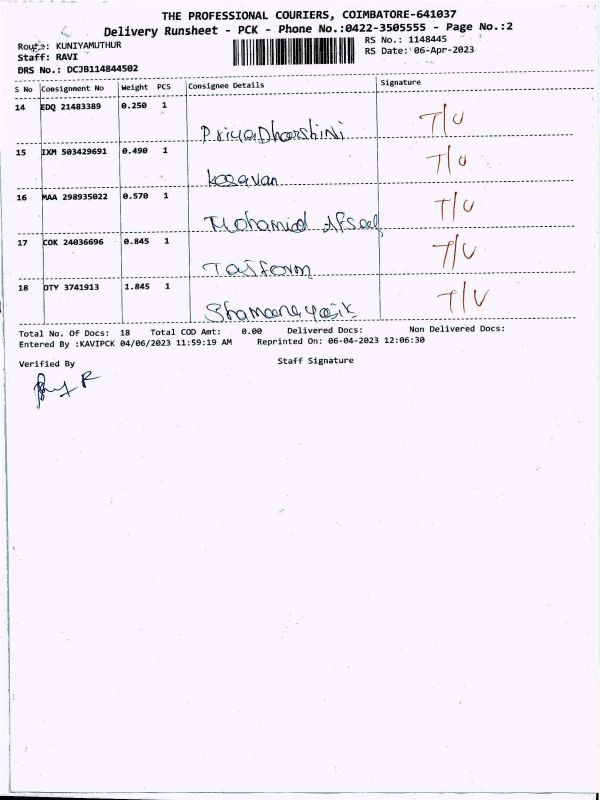 THE PROFESSIONAL COURIERS, COIMBATORE-641037
Delivery Runsheet - PCK - Phone No.:0422-3505555 - Page No.:2
Route: KUNIYAMUTHUR
RS No.: 1148445
Staff: RAVI
RS Date: 06-Apr-2023
DRS No.: DCJB114844502
S No Consignment No Weight PCS Consignee Details Signature
14 EDQ 21483389 0.250 1 T/U
PriyaDharshini
15 IXM 503429691 0.490 1 T/U
Kesavan
16 MAA 298935022 0.570 1 T/U
Mohamid Afsal
17 COK 24036696 0.845 1 T/U
18 OTY 3741913 1.845 1 T/U
Total No. Of Docs: 18 Total COD Amt: 0.00 Delivered Docs: Non Delivered Docs:
Entered By :KAVIPCK 04/06/2023 11:59:19 AM Reprinted On: 06-04-2023 12:06:30
Verified By Staff Signature